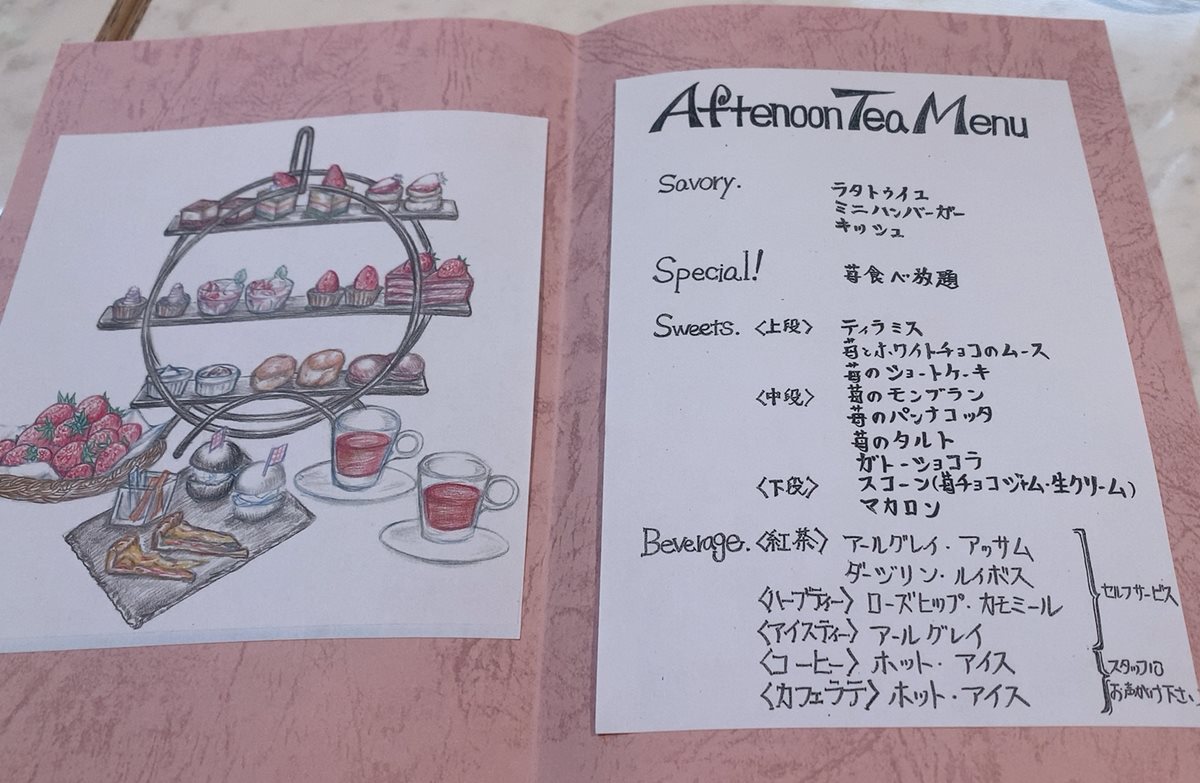 Aftenoon Tea Menu
Savory. ラタトゥイユ
ミニハンバーガー
キッシュ
Special! 苺食べ放題
Sweets. 〈上段〉 ティラミス
苺とホワイトチョコのムース
苺のショートケーキ
〈中段〉 苺のモンブラン
苺のパンナコッタ
苺のタルト
ガトーショコラ
〈下段〉 スコーン(苺チョコジャム・生クリーム)
マカロン
Beverage. 〈紅茶〉 アールグレイ・アッサム
ダージリン・ルイボス
〈ハーブティー〉 ローズヒップ・カモミール
セルフサービス
〈アイスティー〉 アールグレイ
〈コーヒー〉 ホット・アイス
〈カフェラテ〉 ホット・アイス
スタッフに
お声がけ下さい